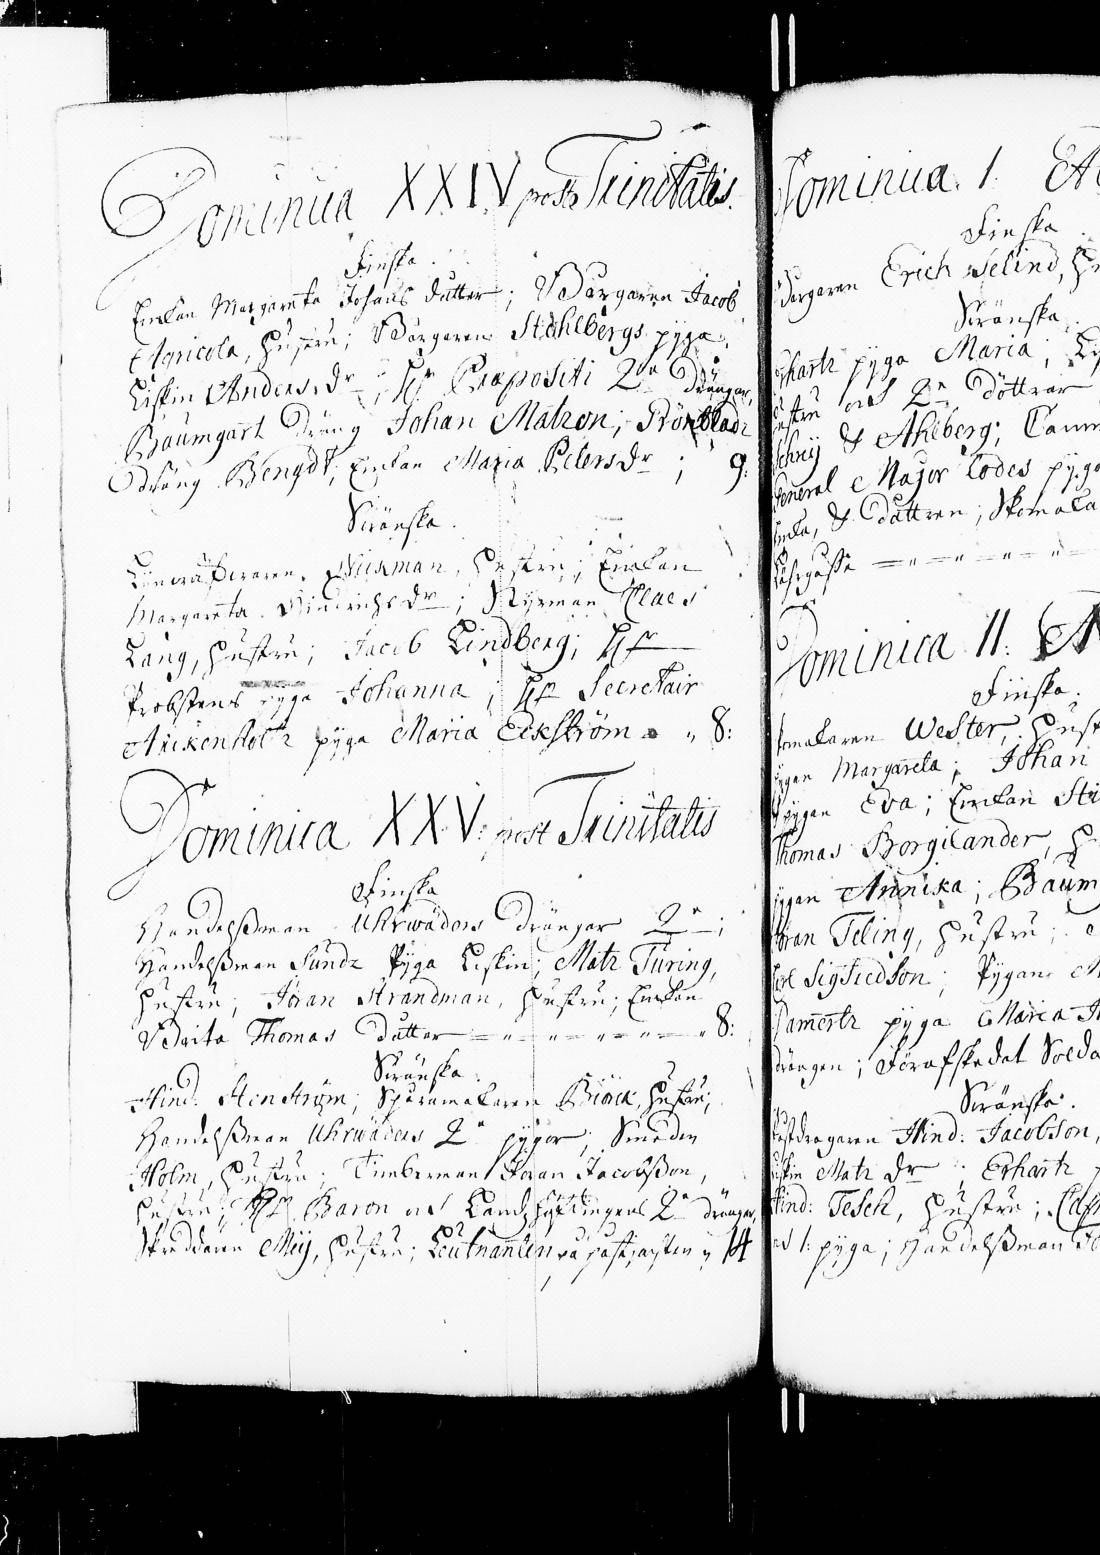 Dominica XXIV post Trinitatis.
Finska.
Enkan Margareta Johans dutter; Borgaren Jacob
Agricola, hustru; Borgaren Stohlbergs pyga,
Liskin Anders dr; Hr Præpositi 2ne drängar,
Baumgart dräng Johan Matzon; Rönbladz
dräng Bengdt; Enkan Maria Peters dr; 9.
Swänska.
hustru; Enkan
Margareta Hindrichs dr; Styrman Claes
Lang, hustru; Jacob Lindberg; Hr
Probstens pyga Johanna; Hr Secretair
pyga Maria Eckström " 8:
Dominica XXV: post Trinitatis
Finska
Handelßman Uhrwäders drängar 2ne;
Handelßman Sundz Pyga Liskin; Matz Turing,
hustru; Jöran Strandman, hustru; Enkan
Brita Thomas dutter " 8:
Swänska.
Hind: Stenström; Sporrmakaren Biörck, hustru;
Handelßman Uhrwäders 2ne pygor; Smeden
Holm, hustru; Timberman Jöran Jacobßon,
hustru; Hr Baron och Landzhöfdingens 2ne drängar,
Skreddaren Mÿ, hustru; Leutnanten 14
Dominica I. A
Finska.
Borgaren Erich Selind, hu
Swänska.
Ehartz pyga Maria; Li
hustru och 2ne döttrar
& Ahlberg; Cam
General Major Lodes pyga
Enka, & Dottren; Skomaka
Dominica II. A
Finska.
Skomakaren Wester, hust
pygan Margareta; Johan
pygan Eva; Enkan Sti
Thomas Borgilander, h
pygan Annika; Baum
Jöran Teling, hustru;
Carl Sigfiedson; Pygan M
Lamertz pyga Maria
drängen; Förafskedat Solda
Swänska.
Postdragaren Hind: Jacobson,
Liskin Matz dr; Erhartz
Hind: Tesch, hustru;
och 1: pyga; Handelßman